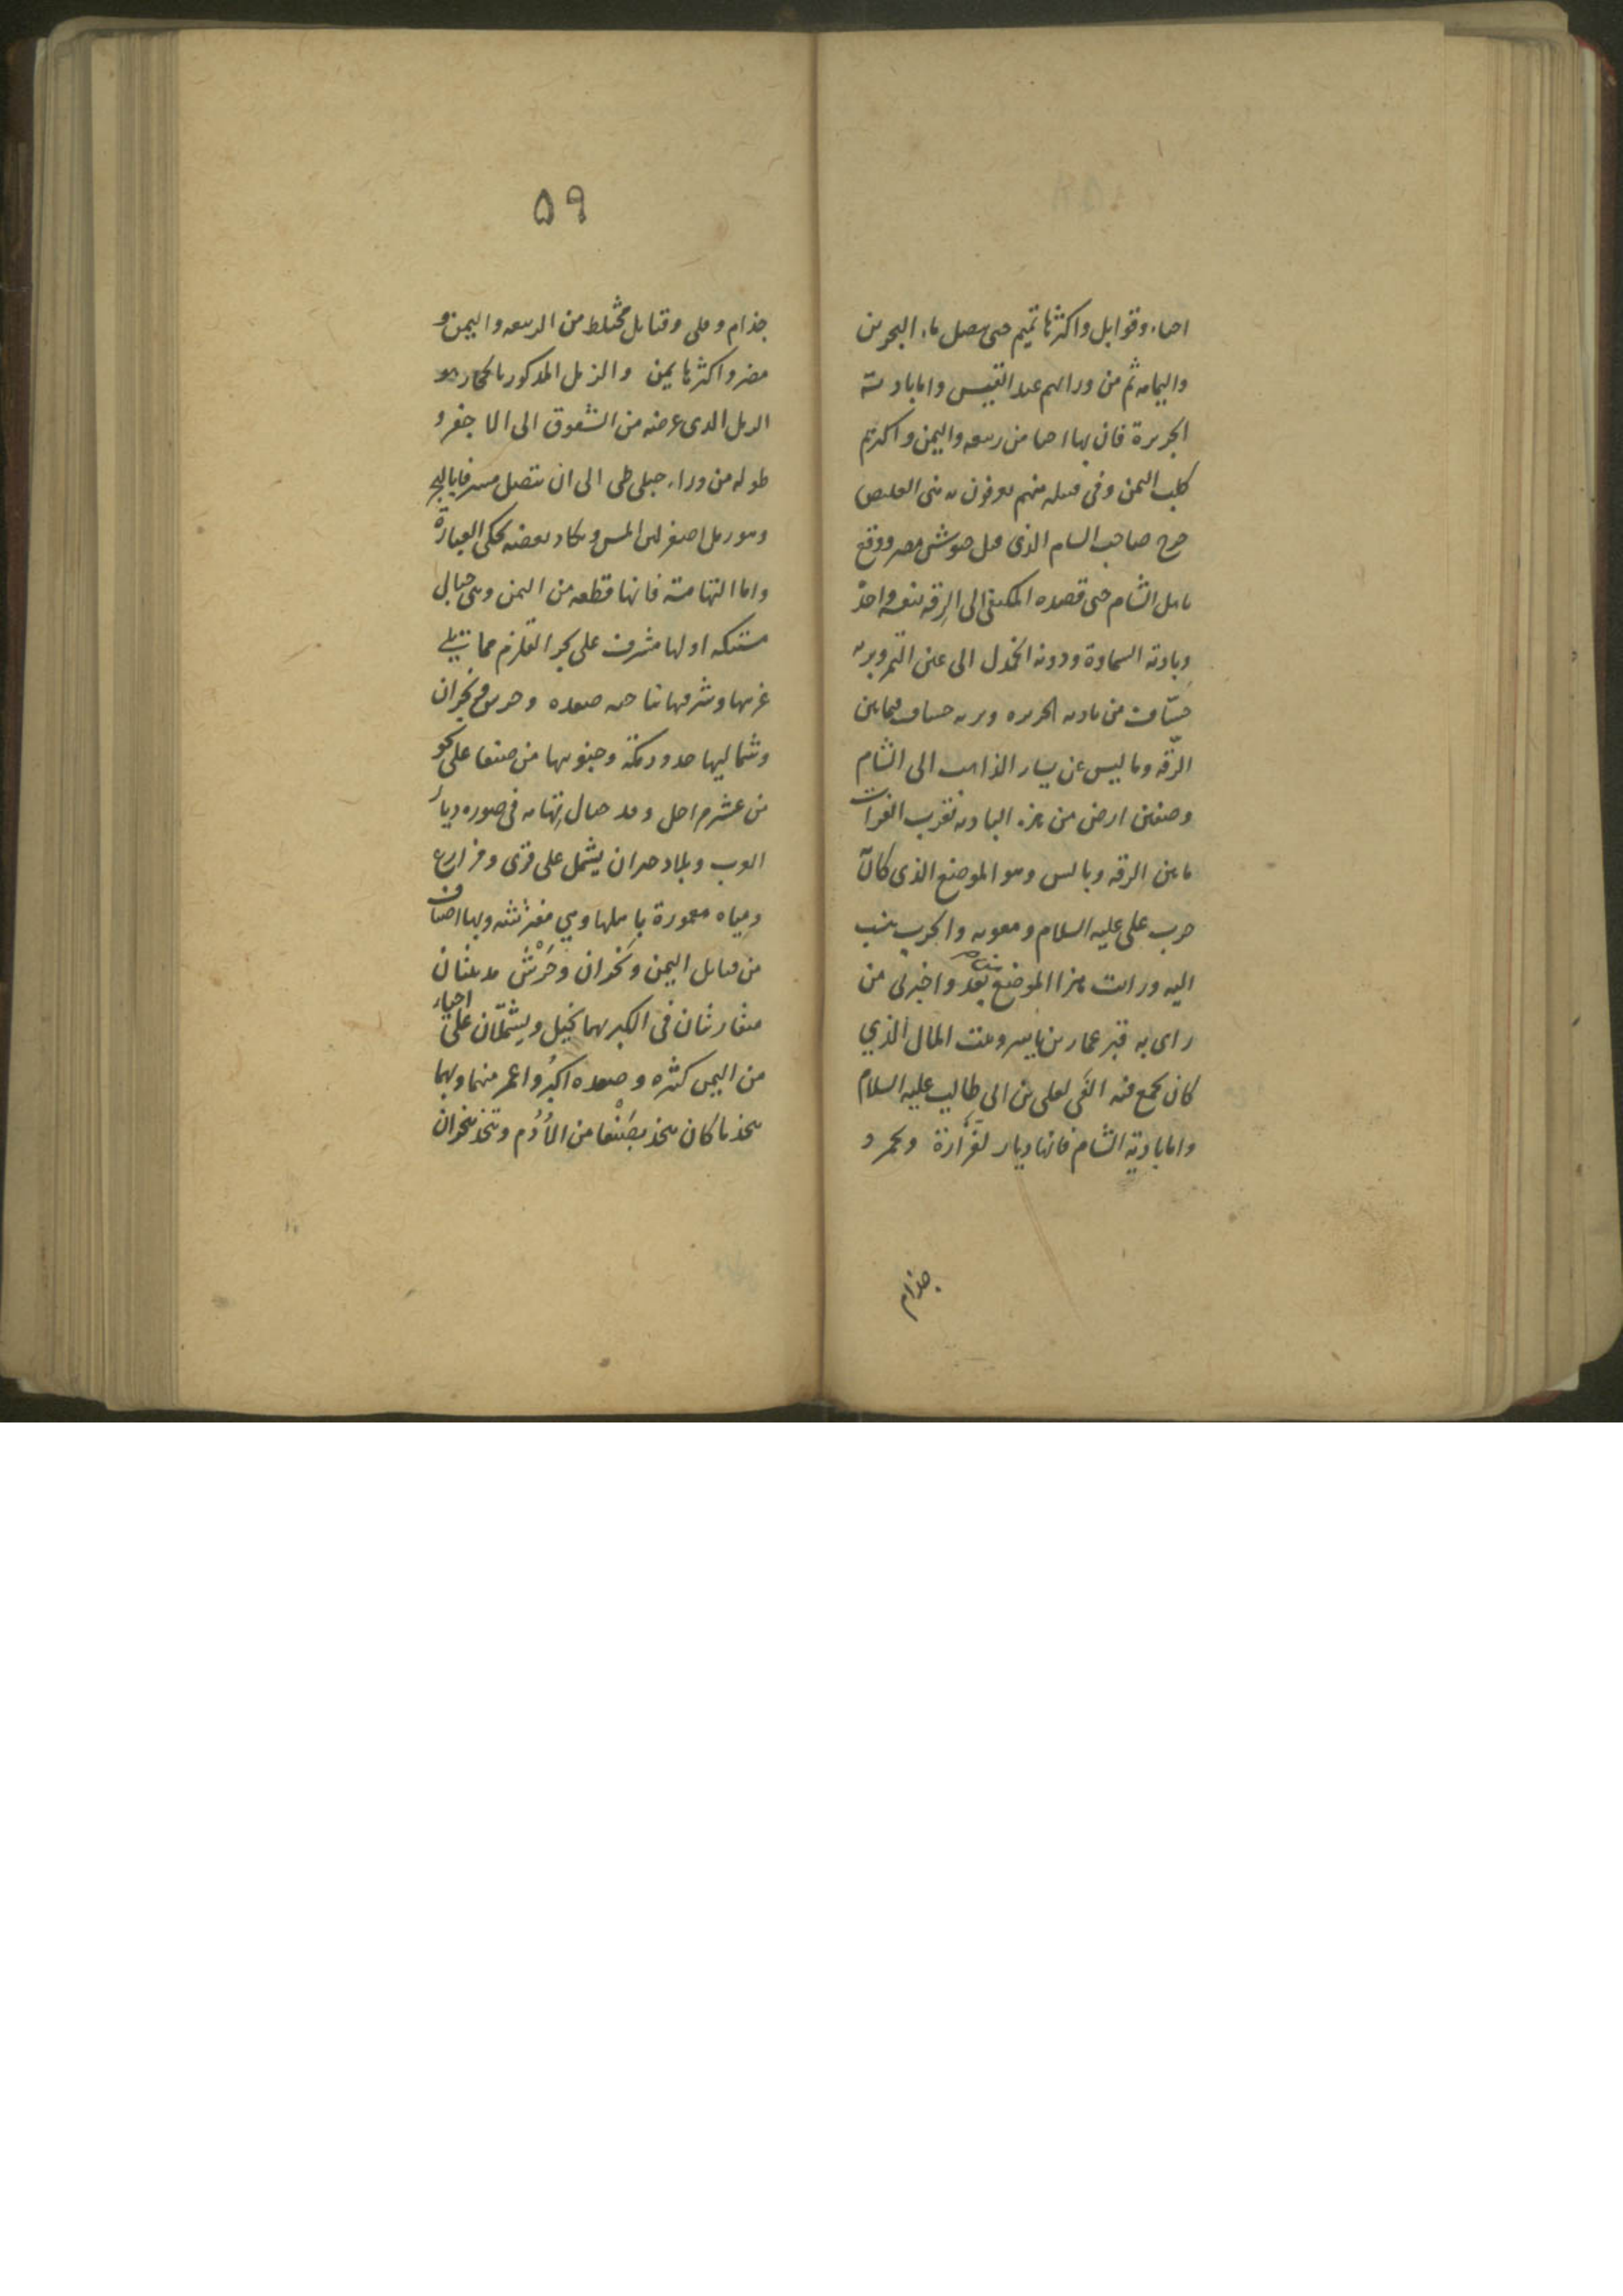 احياء وقوابل واكثرها تميم حتى يتصل ماء البحرين
واليمامه ثم من ورائهم عبد القيس واما بادية
الجزيرة فان بها احيا من ربيعه واليمن واكثرهم
كلب اليمن وفى قبيله منهم يعرفون ببنى العليص
خرج صاحب الشام الذى فل جيوش مصر ووقع
باهل الشام حتى قصده المكتفى الى الرقه
وبادية السماوة ودومة الجندل الى عين التمر وبريه
خسّاف من باديه الجزيره وبريه خساف فيما بين
الرّقه وبالس عن يسار الذاهب الى الشام
وصفين ارض من هذه الباديه بقرب الفرات
ما بين الرقه وبالس وهو الموضع الذى كان
حرب على عليه السلام ومعويه والحرب ينسب
اليه ورايت هذا الموضع واخبرنى من
راى به قبر عمار بن ياسر وبيت المال الذي
كان يجمع فيه الفى لعلى بن ابى طالب عليه السلام
واما بادية الشام فانها ديار لفزارة
جذام
٥٩
جذام وبلى وقبايل مختلط من الربيعه واليمن و
مضر واكثرها يمن والرمل المذكور بالحجاز هو
الرمل الذى عرضه من الشقوق الى الاجفر و
طوله من وراء جبلى طى الى ان يتصل
وهو رمل اصفر لين المس ويكاد بعضه يحكى الغبارة
واما التهامة فانها قطعه من اليمن وهى جبال
مشتبكه اولها مشرف على بحر القلزم مما يلي
غربيها وشرقيها ناحيه صعده وجرش ونجران
وشماليها حدود مكة وجنوبيها من صنعا على نحو
من عشر مراحل وقد جبال تهامه فى صوره ديار
العرب وبلاد خيران يشمل على قرى ومزارع
ومياه معمورة باهلها وهي مفترشه وبها اصناف
من قبايل اليمن ونجران وجرش مدينتان
متقاربتان فى الكبر بهما نخيل ويشتملان على احياء
من اليمن كثيره وصعده اكبر واعمر منهما وبها
يتخذ ما كان يتخذ بصنعا من الادم ويتخذ بنجران